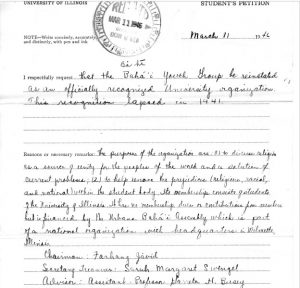 UNIVERSITY OF ILLINOIS
STUDENT'S PETITION
NOTE—Write concisely, accurately,
and distinctly, with pen and ink
MAR 11 1946
March 11 1946
I respectfully request that the Bahá'í Youth Group be reinstated
as an officially recognized University organization.
This recognition lapsed in 1941.
Reasons or necessary remarks: The purposes of the organization are: (1) to discuss religion
as a source of unity for the peoples of the world and a solution of
current problems; (2) to help remove the prejudices (religious, racial,
and national) within the student body. Its membership consists of students
of the University of Illinois. It has no membership dues or contributions for members
but is financed by the Urbana Bahá'í Assembly which is part
of a national organization with headquarters in Wilmette,
Illinois
Chairman: Farhang Javid
Secretary Treasurer: Sarah Margaret Swengel
Advisor: Assistant Professor Garreta H. Busey